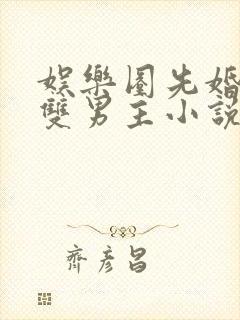 娛樂圈先婚
雙男主小說
齊彥昌